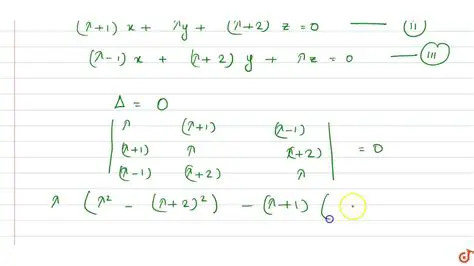 (λ+1) x + λy + (λ+2) z = 0 — (ii)
(λ-1) x + (λ+2) y + λz = 0 — (iii)
Δ = 0
| λ (λ+1) (λ-1) |
| (λ+1) λ (λ+2) | = 0
| (λ-1) (λ+2) λ |
λ (λ² - (λ+2)²) - (λ+1) (